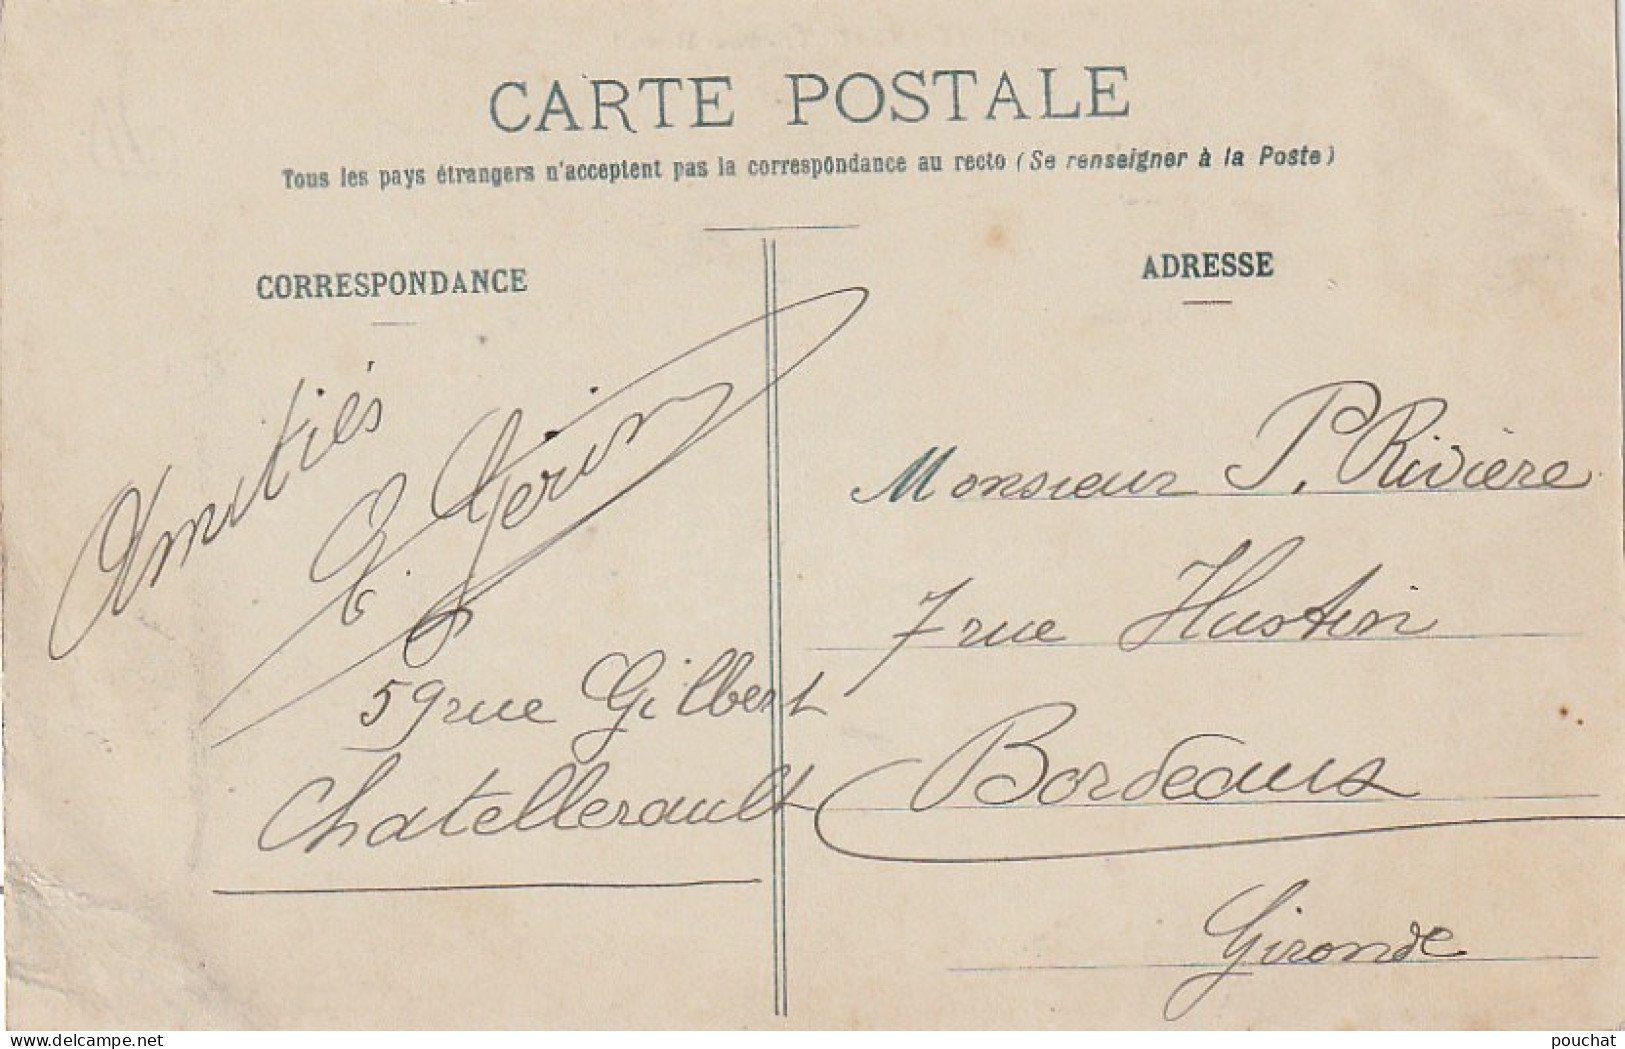 CARTE POSTALE
Tous les pays étrangers n'acceptent pas la correspondance au recto (Se renseigner à la Poste)
CORRESPONDANCE
Amitiés
59 rue Gilbert
Chatellerault
ADRESSE
Monsieur P. Rivière
7 rue Hustin
Bordeaux
Gironde
www.delcampe.net
pouchat